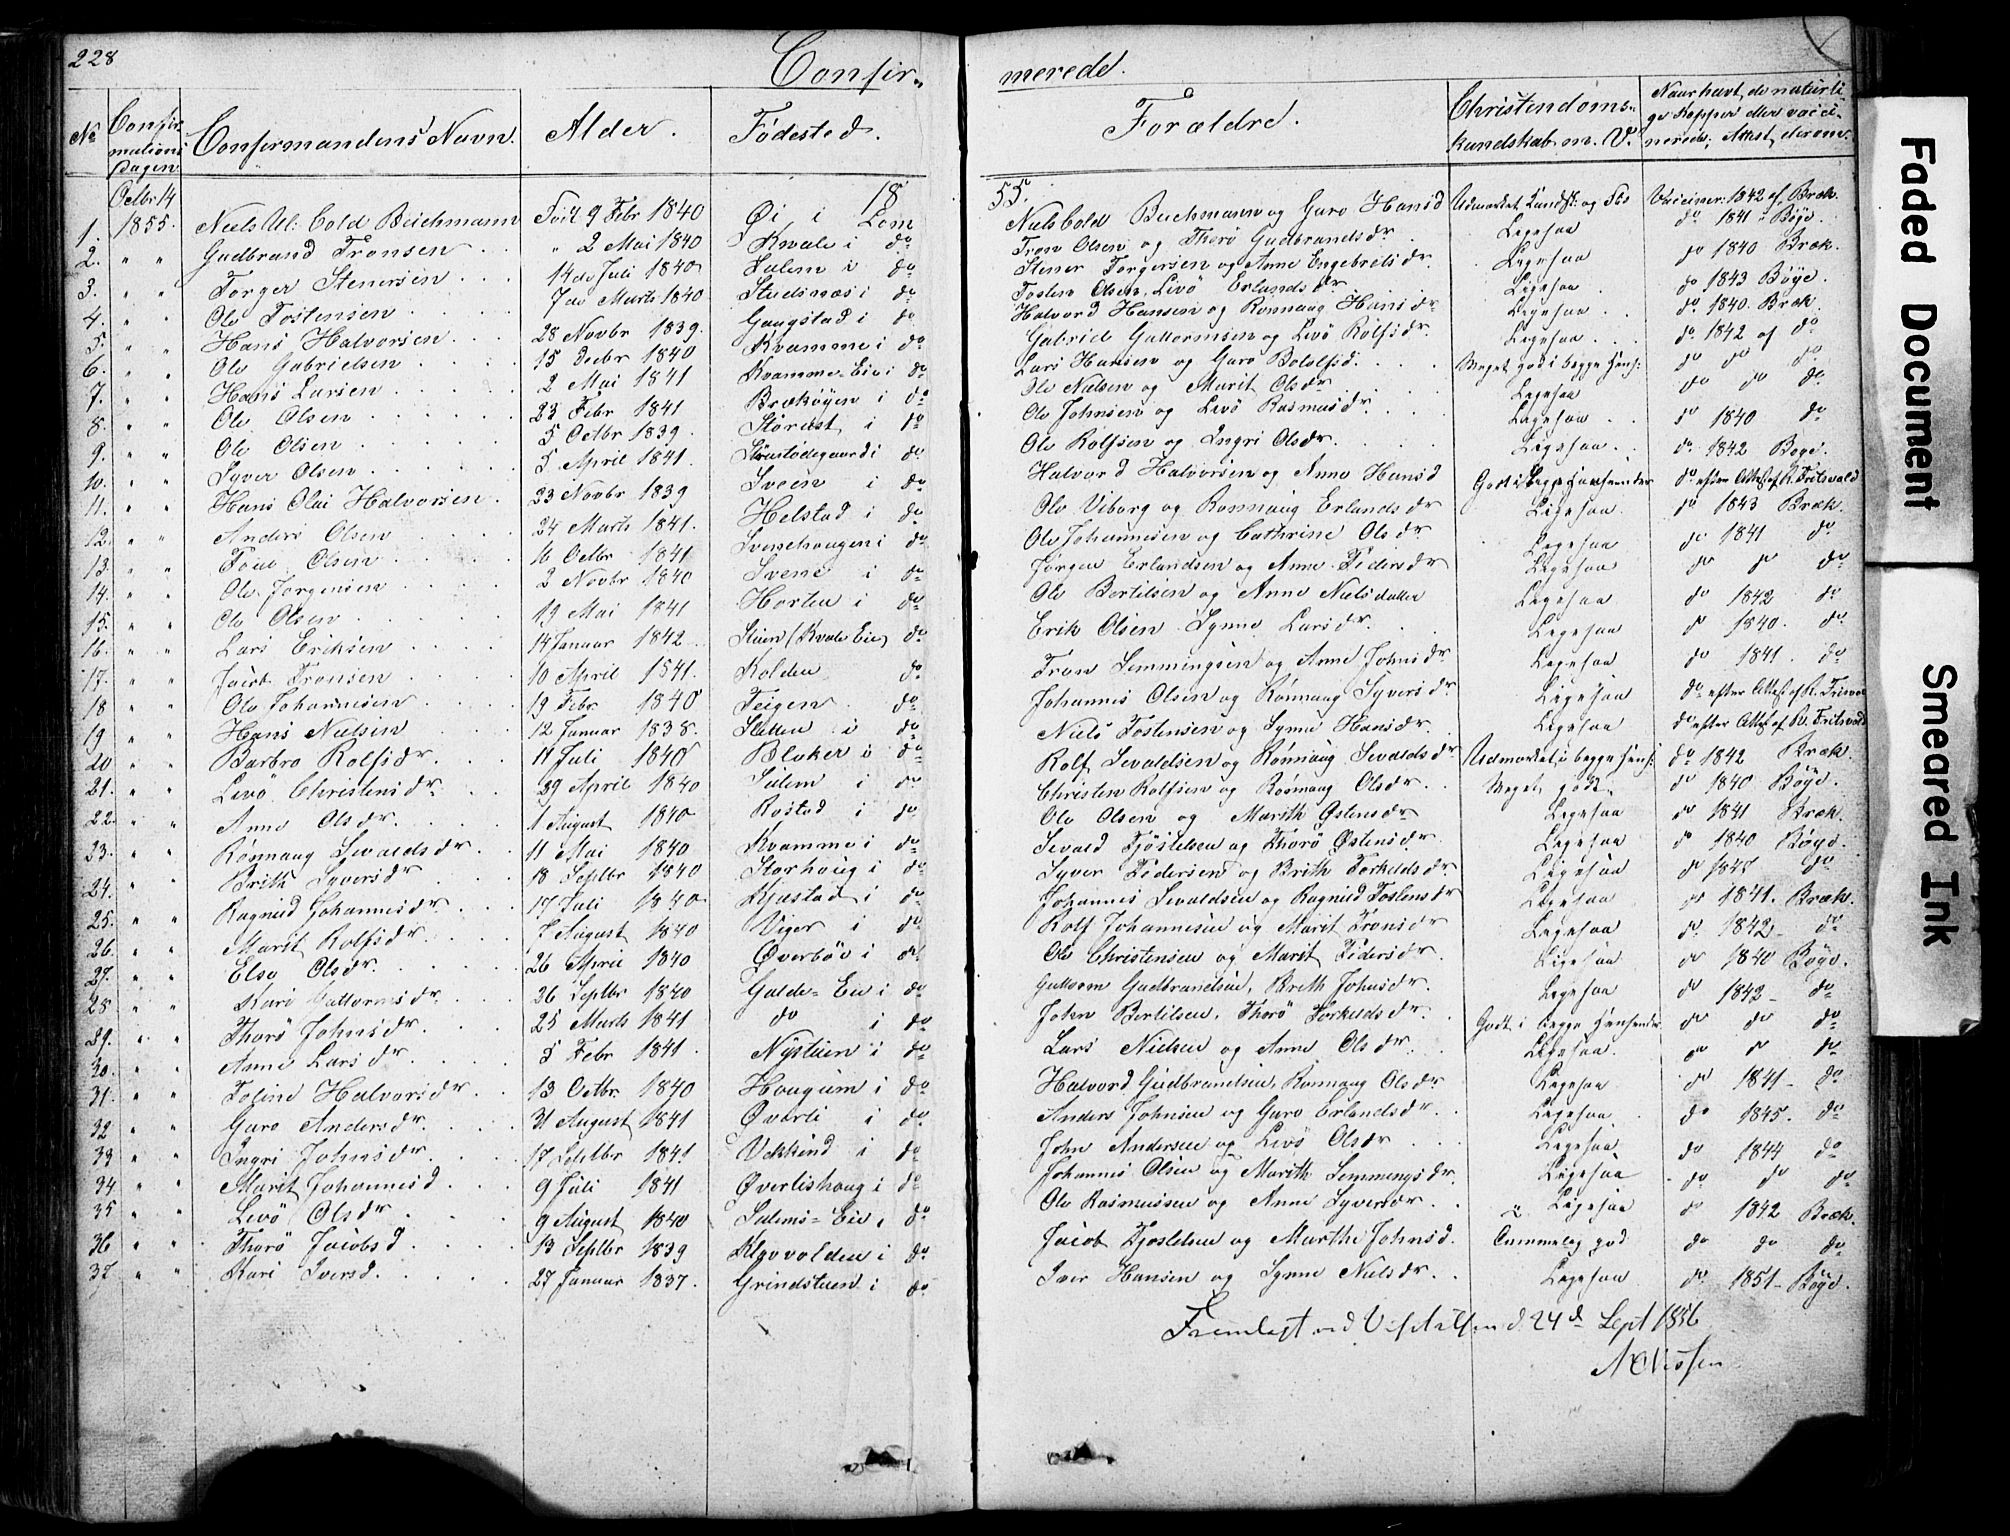 228
Confir=
merede.
No | Confirmations Dagen | Confirmandens Navn. | Alder. | Fødested. | Forældre. | Christendoms-kundskab m. V. | Naar havt de naturlige Kopper eller vaccinerede; Attest derom.
Octbr 14 18 55.
1. 1855. Niels Ul: Cold Beichmann Født 9 Febr 1840 Øi i Lom Niels Cold Buchmann og Guro Hansd Udmærket Kundsk: og Vaccineret 1842 af Bræk.
2. " " Gudbrand Tronsen " 2 Mai 1840 Kvale i do Tron Olsen og Thorø Gudbrandsdr Ligesaa do 1841 Bøye.
3. " " Torger Stenersen 14de Juli 1840 Sulem i do Stener Torgersen og Anne Engebretsdr. Ligesaa do 1840 Bræk.
4. " " Ole Tostensen 7de Marts 1840 i do Tosten Olsen, Livø Erlandsdr Ligesaa do 1843 Bøye.
5. " " Hans Halvorsen 28 Novbr 1839. Gaugstad i do Halvord Hansen og Rønnaug Hansdr Ligesaa do 1840. Bræk
6. " " Ole Gabrielsen 15 Decbr 1840 Kvamme i do Gabriel Guttormsen og Livø Rolfsdr Ligesaa do 1842 af do
7. " " Hans Larsen 2 Mai 1841 Kvamme-Eie i do Lars Hansen og Guro Bololfsd. Meget god i begge Hens: do do do
8. " " Ole Olsen 23 Febr 1841 Brækøyen i do Ole Nielsen og Marit Olsdr Ligesaa do do do
9. " " Ole Olsen 5 Octbr 1839. i do Ole Johnsen og Livø Rasmusdr Ligesaa do 1840 do
10. " " Syver Olsen 5 April 1841. i do Ole Rolfsen og Ingri Olsdr. Ligesaa. do 1842 Bøye.
11. " " Hans Olai Halvorsen 23 Novbr 1839 Sveen i do Halvord Halvorsen og Anne Hansd Godt i begge Henseender do efter Attest af K. Fritsvold
12. " " Anders Olsen 24 Marts 1841. Helstad i do Ole Viborg og Rønnaug Erlandsdr Ligesaa do 1843 Bræk.
13. " " Olsen 16 Octbr 1841 Svenehaugen i do Ole Johannesen og Cathrine Olsdr Ligesaa do 1841 do
14. " " Ole Jørgensen 2 Novbr 1840 Svene i do Jørgen Erlandsen og Anne Pedersdr Ligesaa do do do
15. " " Ole Olsen 19 Mai 1841 Horten i do Ole Bertelsen og Anne Nielsdatter Ligesaa do 1842 do
16. " " Lars Eriksen 14 Januar 1842. Stuen (Kvale Eie) do Erik Olsen Synne Larsdr. Ligesaa do 1840. do
17. " " Jacob Tronsen 10 April 1841. Kolden do Tron Lemmingsen og Anne Johnsdr Ligesaa do 1841. do
18 " " Ole Johannesen 19 Febr 1840 Teigen do Johannes Olsen og Rønnaug Syversdr Ligesaa do efter Attest af K.
19 " " Hans Nielsen 12 Januar 1838. Sletten i do Niels Tostensen og Synne Hansdr. Ligesaa do efter Attest af K. Fritsvold
20 " " Barbro Rolfsdr. 11 Juli 1840 Bleker i do Rolf Sevaldsen og Rønnaug Sevaldsdr Udmærket i begge Hens: do 1842 Bræk.
21. " " Livø Christensdr. 29 April 1840 Sulem i do Christen Rolfsen og Rønnaug Olsdr. Meget godt. do 1840 Bøye.
22. " " Anne Olsdr. 1 August 1840 Rustad i do Ole Olsen og Marith Østensdr Ligesaa do 1841 Bræk.
23. " " Rønnaug Sevaldsdr. 11 Mai 1840 Kvamme i do Sevald Tjøstelsen og Thorø Østensdr. Ligesaa do 1840 Bøye.
24. " " Brith Syversdr 18 Septbr 1840 Storhaug i do Syver Pedersen og Brith Torkeldsdr Ligesaa do do
25. " " Ragnild Johannesdr. 17 Juli 1840. Kjæstad i do Johannes Sevaldsen og Ragnild Tostensdr Ligesaa do 1841. Bræk.
26. " " Marit Rolfsdr. 7 August 1840 Viger i do Rolf Johannesen og Marit Tronsdr Ligesaa do 1842- do
27. " " Else Olsdr. 26 April 1840 Øverbøe i do Ole Christensen og Marit Pedersdr. Ligesaa do 1840 Bøye.
28 " " Kari Guttormsdr. 26 Septbr 1840 Galde-Eie i do Guttorm Gudbrandsen, Brith Johnsdr. Ligesaa do 1842- do
29. " " Thorø Johnsdr. 25 Marts 1841 do i do John Bertelsen, Thorø Torkeldsdr. Godt i begge Henseender do do do
30. " " Anne Larsdr. 5 Febr 1841. Nystuen i do Lars Nielsen og Anne Olsdr. Ligesaa. do do do
31. " " Toline Halvorsdr 13 Octbr. 1840 Hougum i do Halvord Gudbrandsen, Rønnaug Olsdr Ligesaa do 1841- do
32 " " Guro Andersdr. 31 August 1841 Øverli i do Anders Johnsen og Guro Erlandsdr. Ligesaa do 1845. do
33 " " Ingri Johnsdr. 17 Septbr 1841 Vekkind i do John Andersen og Livø Olsdr Ligesaa do 1844 do
34 " " Marit Johannesd 9 Juli 1841 Øverlishaug i do Johannes Olsen og Marith Lemmingsdr. Ligesaa do do do
35 " " Livø Olsdr 9 August 1840 Sulems-Eie. do Ole Rasmussen og Anne Syversdr. Ligesaa do 1842 Bræk.
36 " " Thorø Jacobsd 13 Septbr 1839 Klovvolden i do Jacob Kjøstelsen og Marthe Johnsd. Temmelig god do do do
37 " " Kari Iversd. 27 Januar 1837. Grindstuen i do Iver Hansen og Synne Nielsdr. Ligesaa do 1851- Bøye.
Fremlagt ved Visitatsen d. 24de Sept 1856
Faded Document
Smeared Ink